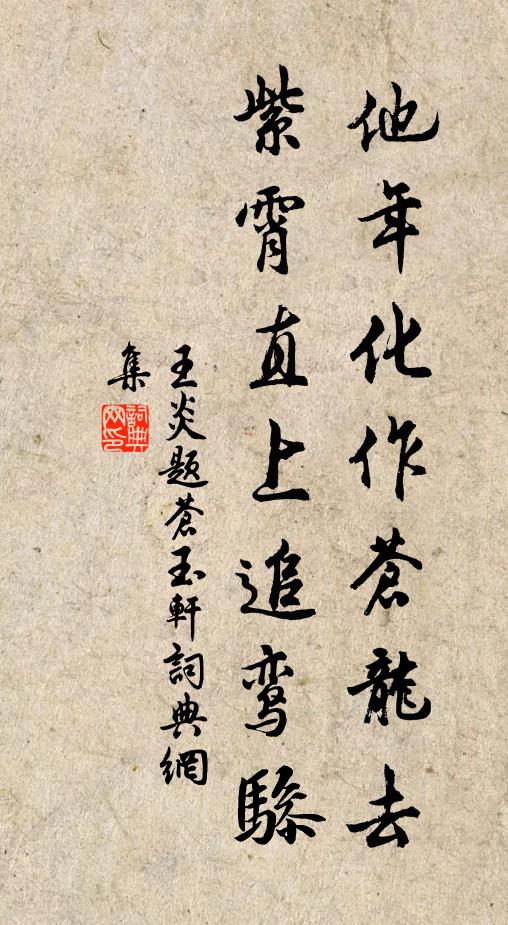 他年化作蒼龍去
紫霄直上追鸾驂
王炎题蒼玉軒詞典網
集
詞典网印